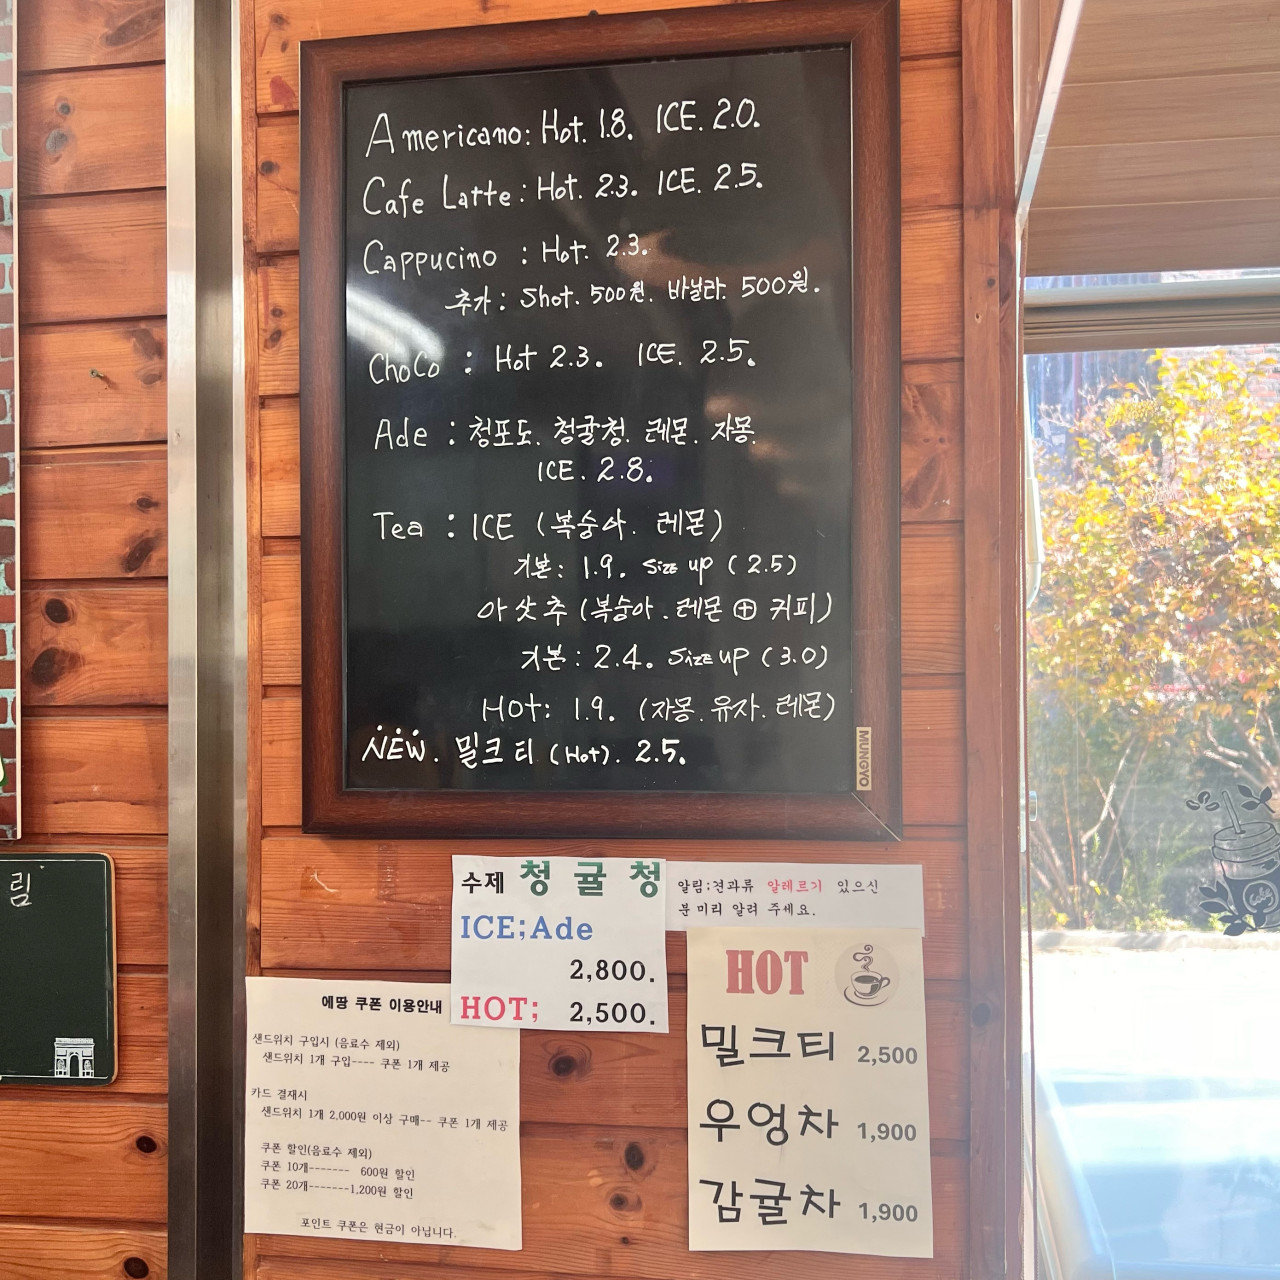 Americano: Hot. 1.8. ICE. 2.0.
Cafe Latte: Hot. 2.3. ICE. 2.5.
Cappucino : Hot. 2.3.
추가: Shot. 500원. 바닐라. 500원.
ChoCo : Hot 2.3. ICE. 2.5.
Ade : 청포도. 청귤청. 레몬. 자몽.
ICE. 2.8.
Tea : ICE (복숭아. 레몬)
기본: 1.9. Size up (2.5)
아샷추 (복숭아. 레몬 ⊕ 커피)
기본: 2.4. Size up (3.0)
Hot: 1.9. (자몽. 유자. 레몬)
NEW. 밀크티 (Hot). 2.5.
MUNGYO
림
수제 청귤청
ICE;Ade
2,800.
HOT; 2,500.
알림;견과류 알레르기 있으신
분 미리 알려 주세요.
HOT
밀크티 2,500
우엉차 1,900
감귤차 1,900
에땅 쿠폰 이용안내
샌드위치 구입시 (음료수 제외)
샌드위치 1개 구입---- 쿠폰 1개 제공
카드 결재시
샌드위치 1개 2,000원 이상 구매-- 쿠폰 1개 제공
쿠폰 할인(음료수 제외)
쿠폰 10개------- 600원 할인
쿠폰 20개-------1,200원 할인
포인트 쿠폰은 현금이 아닙니다.